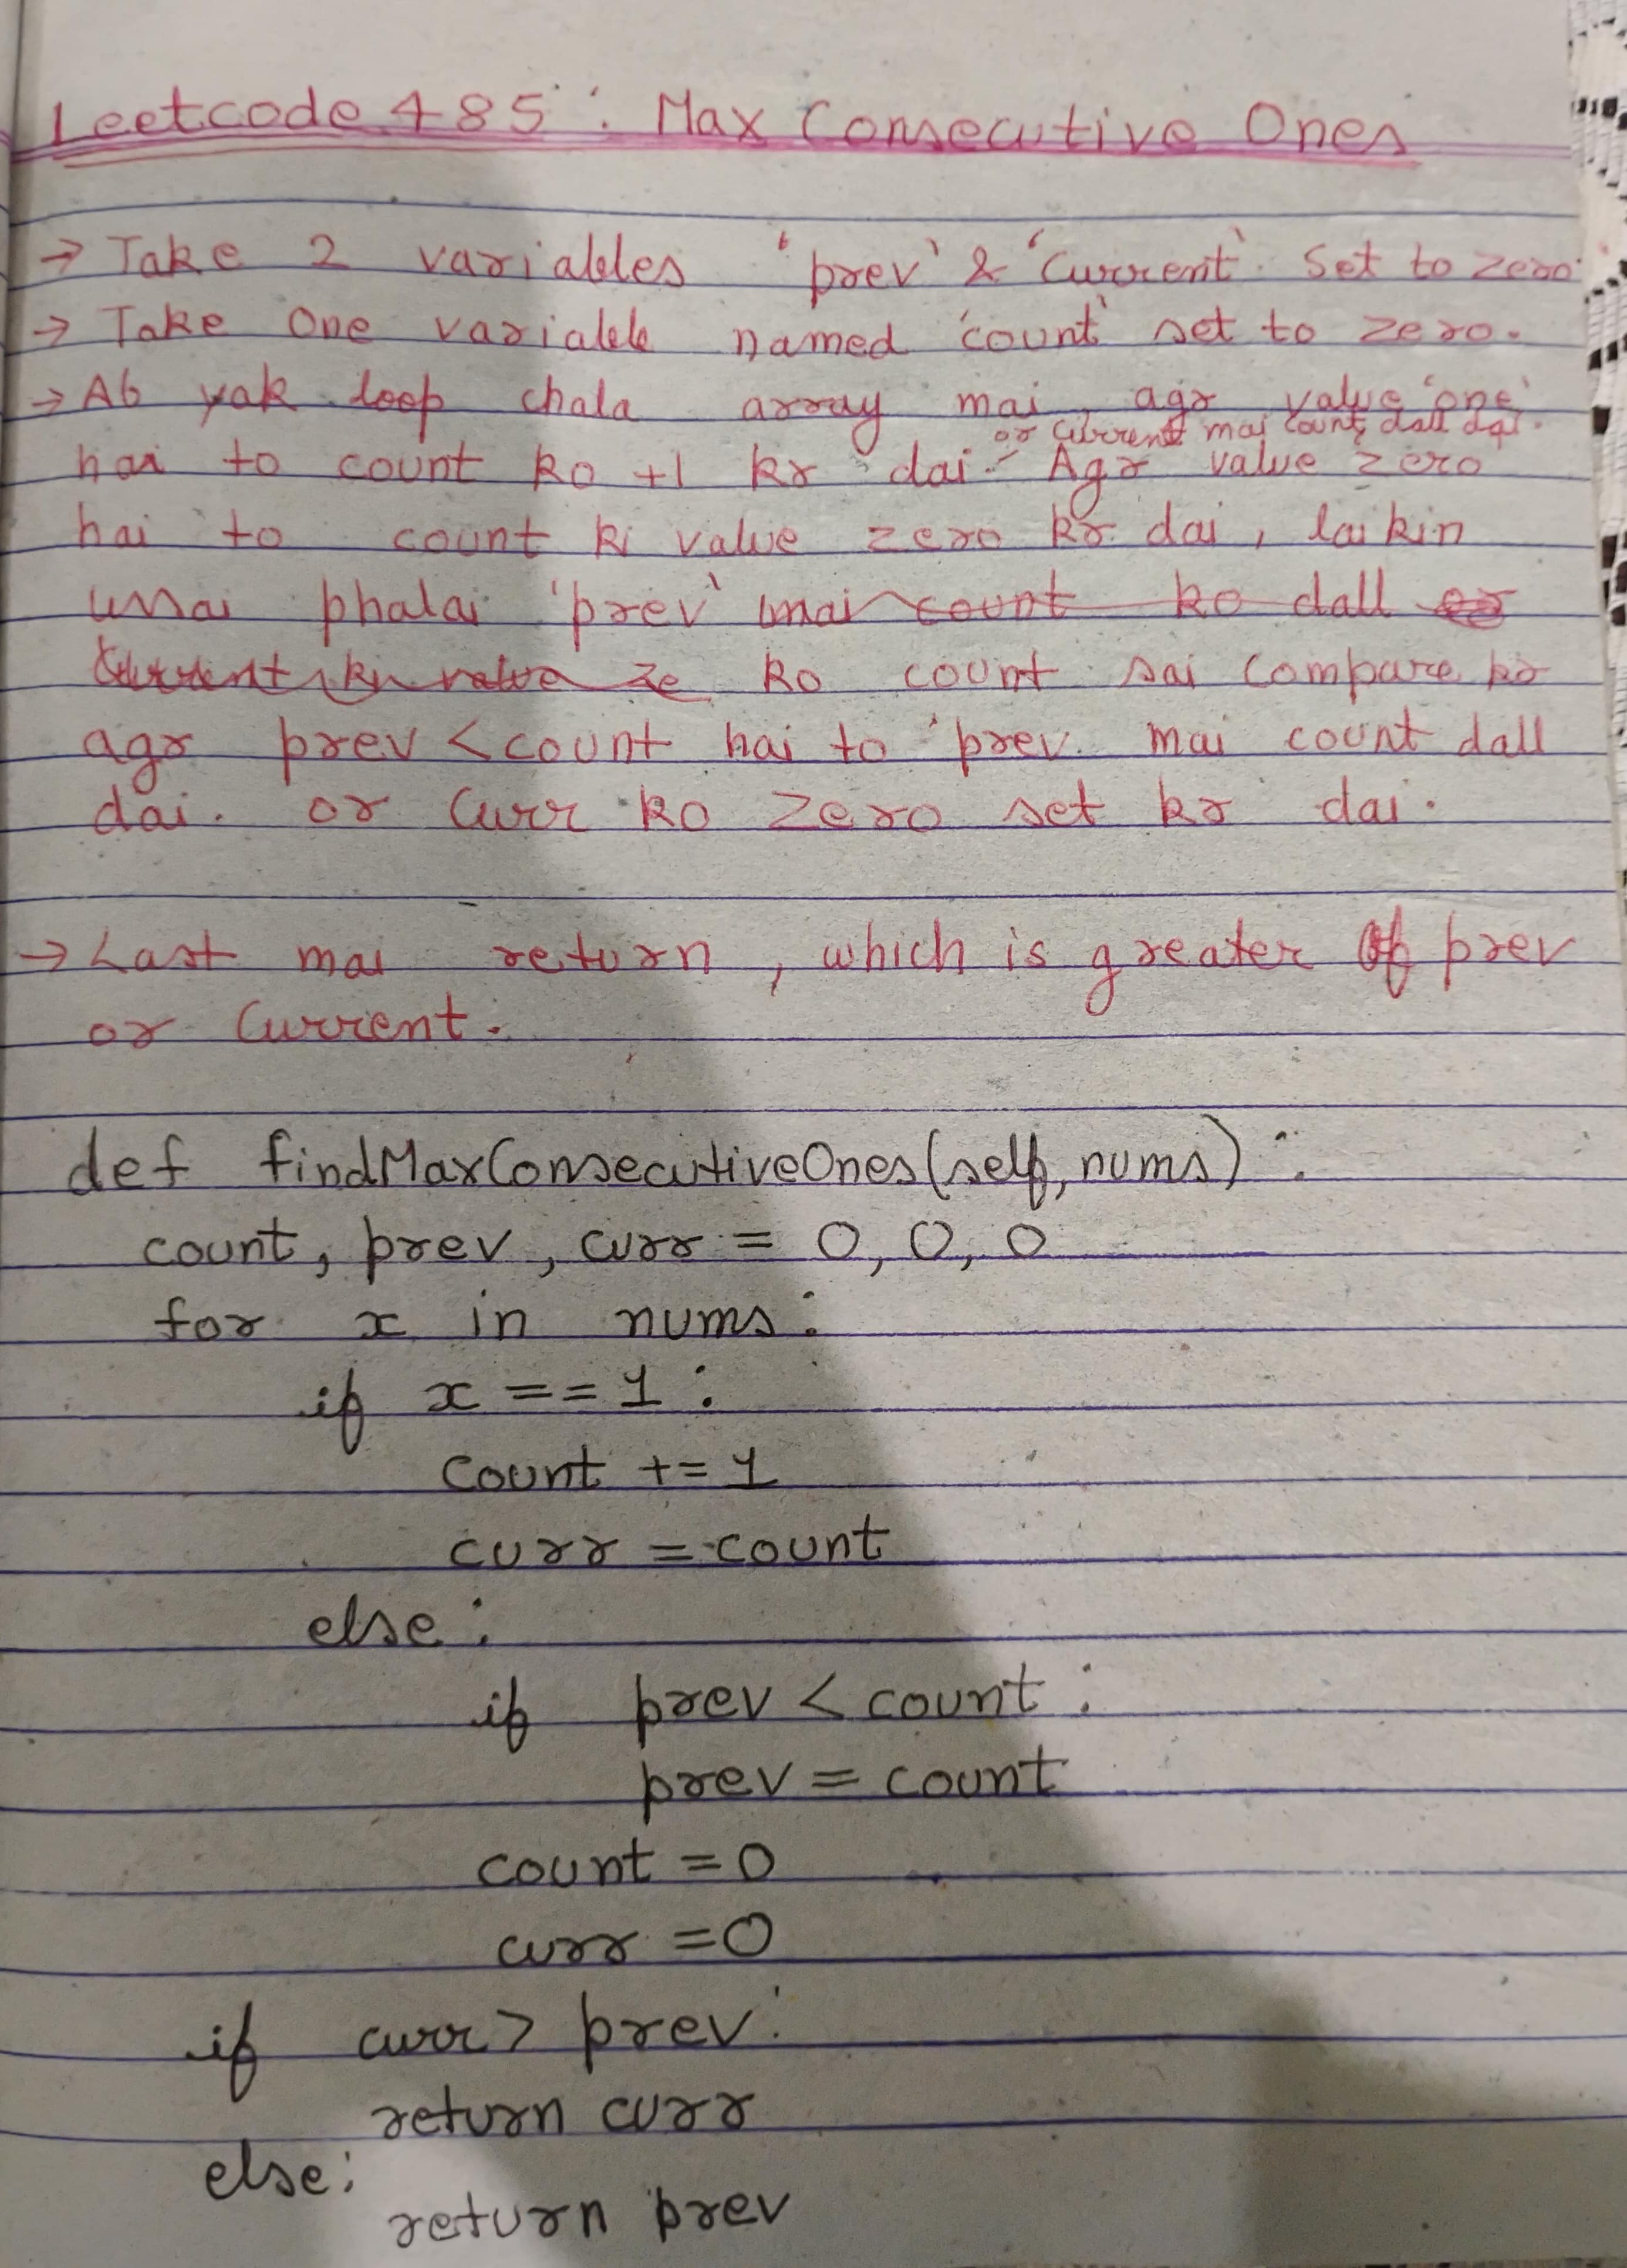 Leetcode 485 : Max Consecutive Ones
→ Take 2 variables 'prev' & 'Current' Set to zero.
→ Take One variable named 'count' set to zero.
→ Ab yak loop chala array mai, agr value 'one'
or current mai count dall dai.
hai to count ko +1 kr dai. Agr value zero
hai to count ki value zero kr dai, laikin
ussai phalai 'prev' mai count ko dall or
Current ki value ze ko count sai compare kr
agr prev < count hai to prev mai count dall
dai. or Curr ko zero set kr dai.
→ Last mai return, which is greater of prev
or Current.
def findMaxConsecutiveOnes(self, nums):
count, prev, curr = 0, 0, 0
for x in nums:
if x == 1 :
count += 1
curr = count
else :
if prev < count :
prev = count
count = 0
curr = 0
if curr > prev:
return curr
else:
return prev